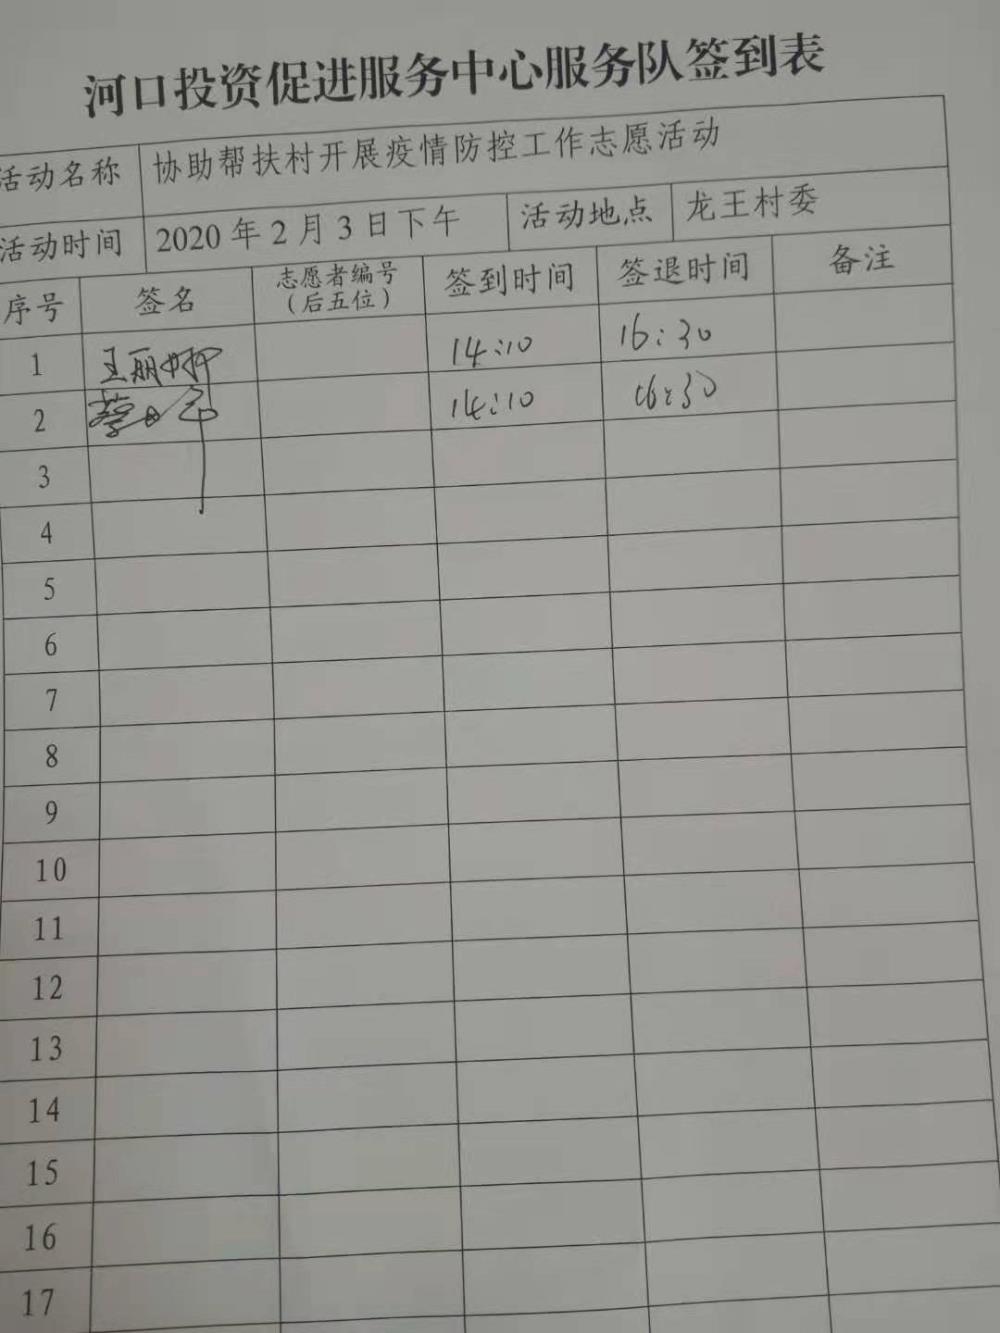 河口投资促进服务中心服务队签到表
活动名称 协助帮扶村开展疫情防控工作志愿活动
活动时间 2020年2月3日下午 活动地点 龙王村委
序号 签名 志愿者编号（后五位） 签到时间 签退时间 备注
1 王丽 14:10 16:30
2 蔡 14:10 16:30
3
4
5
6
7
8
9
10
11
12
13
14
15
16
17